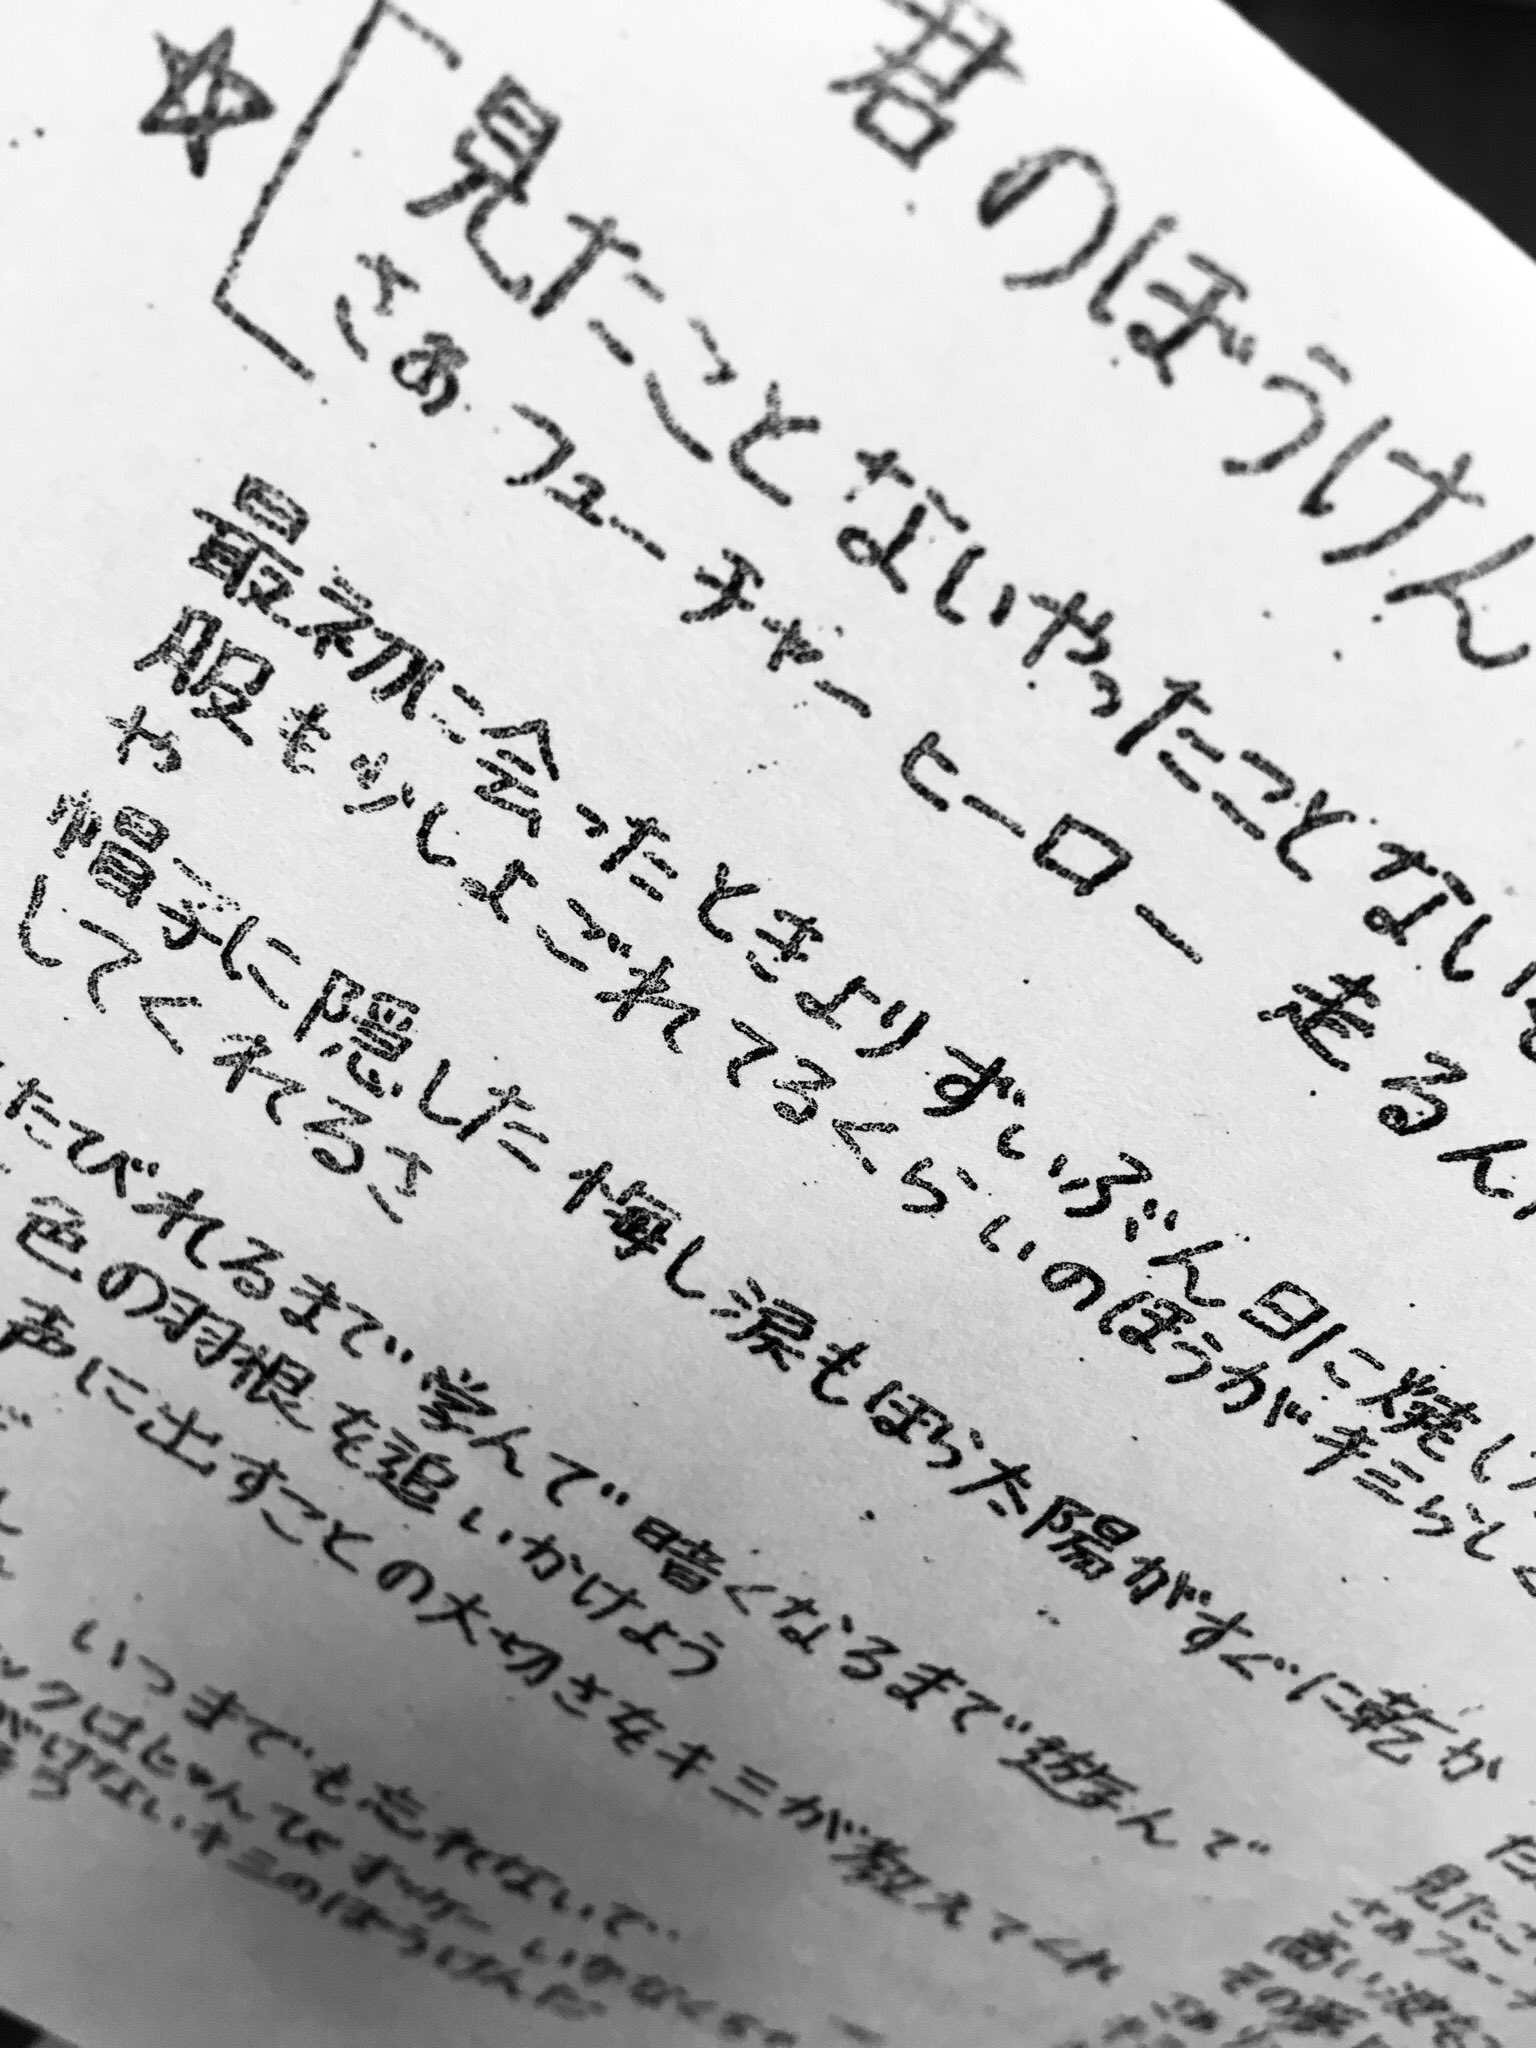 君のぼうけん
見たことないやったことない
さあ フューチャーヒーロー 走る
最初に会ったときよりずいぶん日に焼け
服も少しよごれてるくらいのほうがキミらし
や
帽子に隠した 悔し涙もほらた陽がすぐに乾か
してくれるさ
たびれるまで学んで暗くなるまで遊んで
色の羽根を追いかけよう
声に出すことの大切さをキミが教えてくれ
いつまでも忘れないで
キミのぼうけんだ
見たこ
さあフュー
高い波も